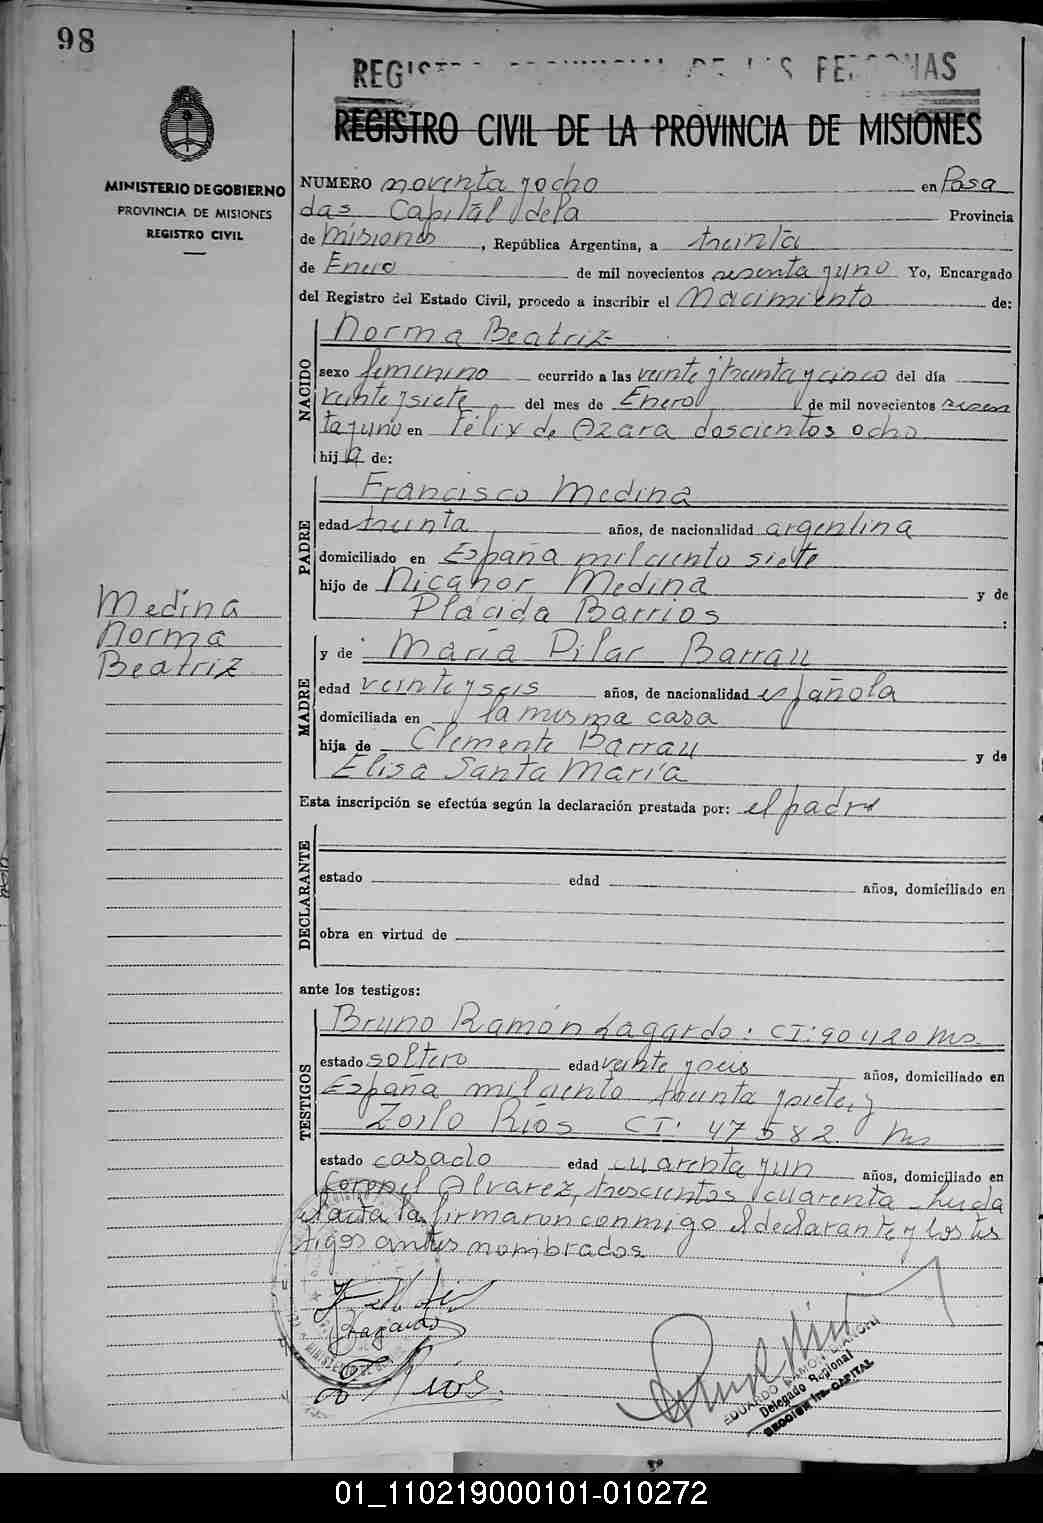 98
REGISTRO PROVINCIAL DE LAS PERSONAS
REGISTRO CIVIL DE LA PROVINCIA DE MISIONES
MINISTERIO DE GOBIERNO
PROVINCIA DE MISIONES
REGISTRO CIVIL
NUMERO noventa y ocho en Posa
das Capital de la Provincia
de Misiones, República Argentina, a treinta
de Enero de mil novecientos sesenta y uno Yo, Encargado
del Registro del Estado Civil, procedo a inscribir el Nacimiento de:
NACIDO
Norma Beatriz
sexo femenino ocurrido a las veinte y treinta y cinco del día
veinte y siete del mes de Enero de mil novecientos sesen
ta y uno en Félix de Azara doscientos ocho
hija de:
PADRE
Francisco Medina
edad treinta años, de nacionalidad argentina
domiciliado en España mil ciento siete
hijo de Nicanor Medina y de
Plácida Barrios :
Medina
Norma
Beatriz
MADRE
y de María Pilar Barrau
edad veinte y seis años, de nacionalidad española
domiciliada en la misma casa
hija de Clemente Barrau y de
Elisa Santa María
Esta inscripción se efectúa según la declaración prestada por: el padre
DECLARANTE
estado edad años, domiciliado en
obra en virtud de
ante los testigos:
TESTIGOS
Bruno Ramón Lagardo: CI: 90420 Ms.
estado soltero edad veinte y seis años, domiciliado en
España mil ciento treinta y siete, y
Zoilo Ríos CI: 47582 Ms
estado casado edad cuarenta y un años, domiciliado en
Coronel Alvarez trescientos cuarenta leida
el acta la firmaron conmigo el declarante y los tes
tigos antes nombrados
Lagardo
Z Ríos.
EDUARDO RAMON
Delegado Regional
SECCION 1ra. CAPITAL
01_110219000101-010272